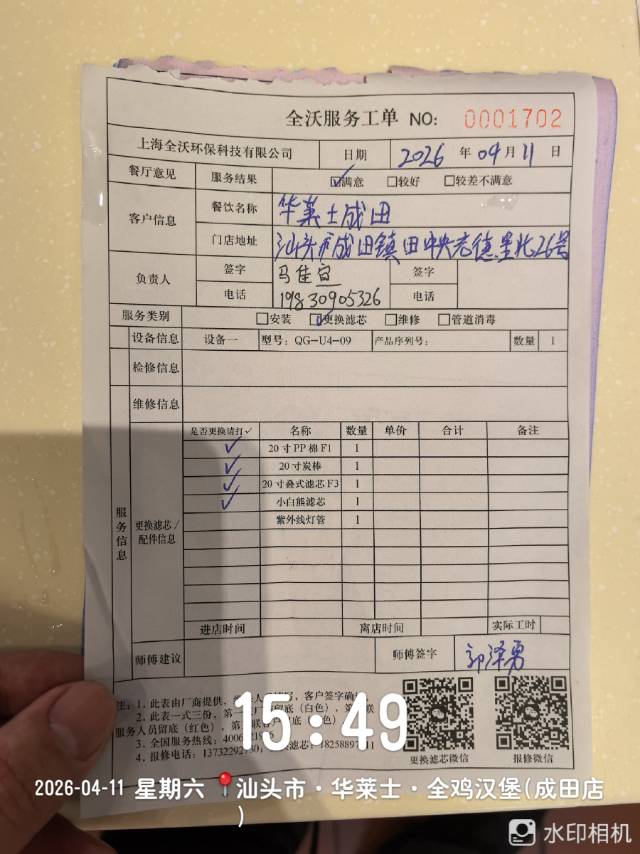 全沃服务工单 NO: 0001702
上海全沃环保科技有限公司 日期 2026 年 04 月 11 日
餐厅意见 服务结果 ☑满意 □较好 □较差不满意
客户信息 餐饮名称 华莱士成田
门店地址 汕头市成田镇田中央志德里北26号
负责人 签字 马佳宜 签字
电话 19830905326 电话
服务类别 □安装 ☑更换滤芯 □维修 □管道消毒
设备信息 设备一 型号：QG-U4-09 产品序列号： 数量 1
检修信息
维修信息
服务信息
更换滤芯/配件信息
是否更换请打✓ 名称 数量 单价 合计 备注
✓ 20寸PP棉F1 1
✓ 20寸炭棒 1
✓ 20寸叠式滤芯F3 1
✓ 小白熊滤芯 1
紫外线灯管 1
进店时间 离店时间 实际工时
师傅建议 师傅签字 郭泽勇
注：1．此表由厂商提供，
客户签字确
2．此表一式三份，第
底（白色），第
联
服务人员留底（红色），第三联
底
色）。
3．全国服务热线：4006
4．报修电话：13732292
滤芯：1825889
更换滤芯微信 报修微信
15:49
2026-04-11 星期六 汕头市·华莱士·全鸡汉堡(成田店
)
水印相机